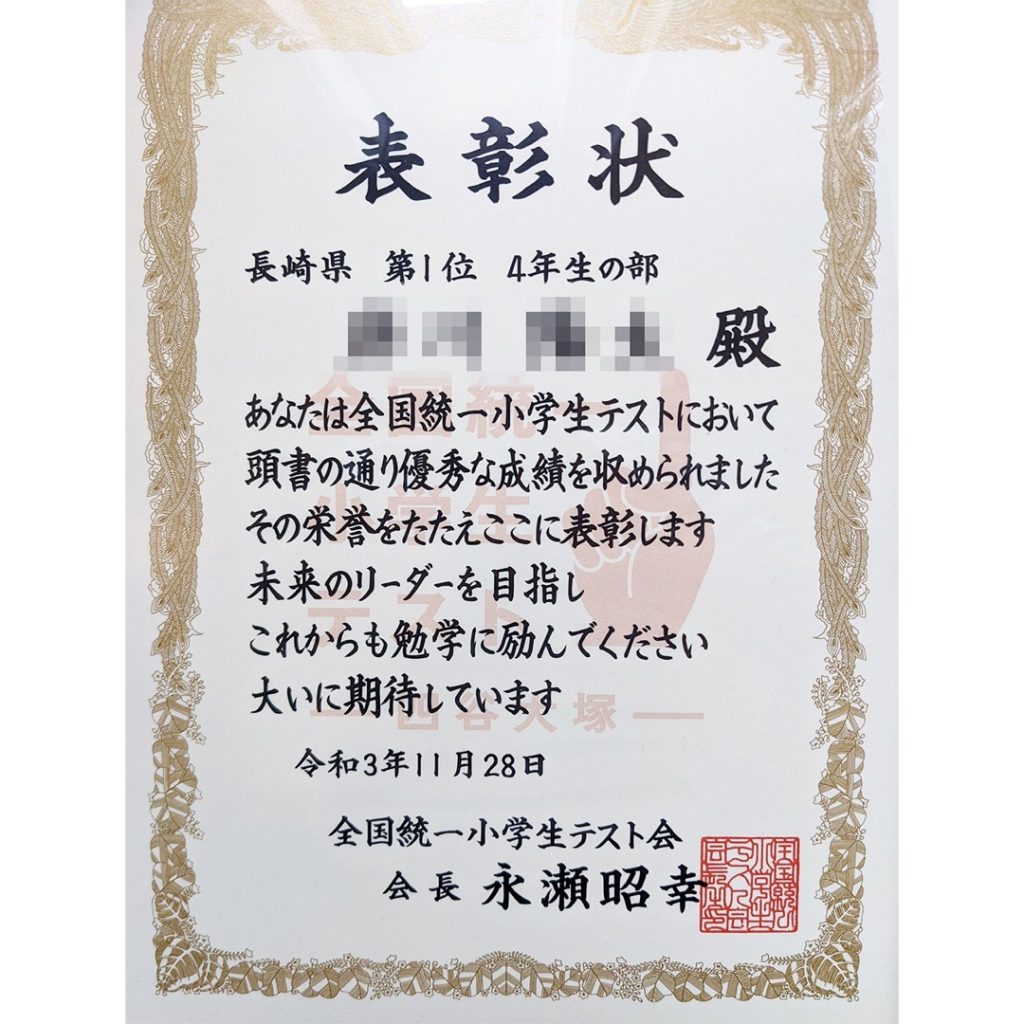 表彰状
長崎県 第1位 4年生の部
殿
あなたは全国統一小学生テストにおいて
頭書の通り優秀な成績を収められました
その栄誉をたたえここに表彰します
未来のリーダーを目指し
これからも勉学に励んでください
大いに期待しています
令和3年11月28日
全国統一小学生テスト会
会長 永瀬昭幸
全国統一
小学生
テスト
四谷大塚